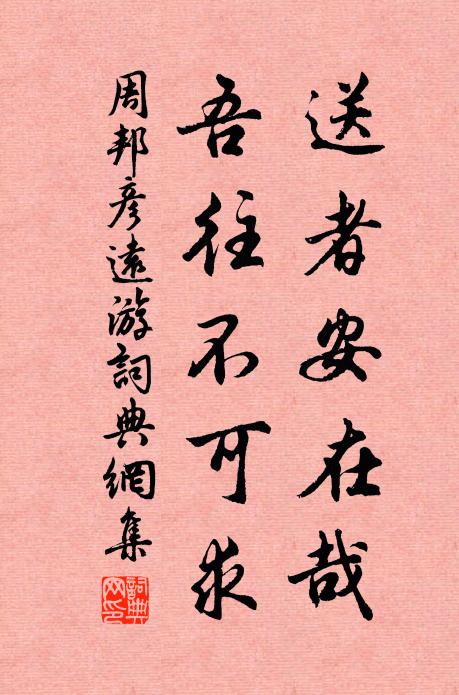 送者安在哉
吾往不可求
周邦彦遠游詞典網集
詞典網印